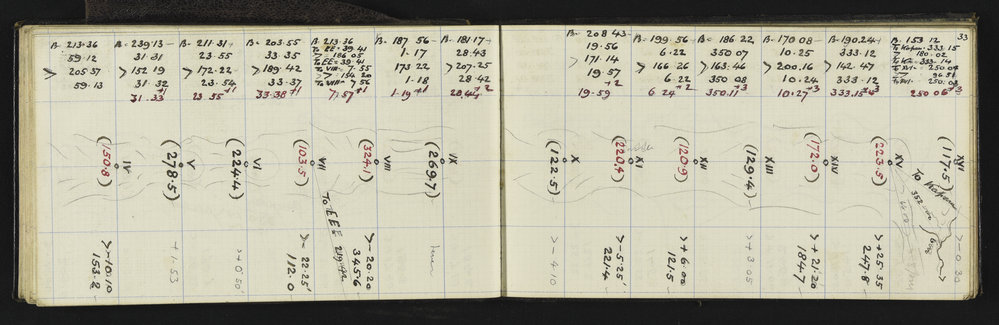 33
B- 213·36
59·12
> 205·37
59·13
B- 239·13
31·31
> 152·19
31·32
31·33
B- 211·31
23·55
> 172·22
23·55 +1
B- 203·55
33·35
> 189·42
33·37
33·38 +1
B 213·36
To EE = 39·41
> 186·05
To EE = 39·41
To VIII- 7·55
> 154·20
To VIII- 7·55
7·57 +1
B- 187·56
1·17
173·22
1·18
1·19 +1
B- 181·17
28·43
> 207·25
28·42
B- 208·43
19·56
> 171·14
19·57
19·59
B- 199·56
6·22
> 166·26
6·22
6·24 +2
B- 186·22
350·07
> 163·46
350·08
350·11 +3
B- 170·08
10·25
> 200·16
10·24
10·27 +3
B- 190·24
333·12
> 142·47
333·12
333·15
B- 153·12
To Kopu- 333·15
> 180·02
333·14
To XVI- 250·04
> 96·51
250·06 +3
IV
(150·8)
V
(278·5)
VI
(224·4)
VII
(103·5)
VIII
(324·1)
IX
(269·7)
X
(122·5)
XI
(220·4)
XII
(120·9)
XIII
(129·4)
XIV
(172·0)
XV
(223·5)
XVI
(117·5)
To EEE
219·42
To
352
>-10·10
153·2
+1·53
>+0·50'
>- 22·25'
112·0
>-20·20
345·6
>-4·10
>-5·25'
221·4
>+6·00
121·5
>+3·05
>+21·20
184·7
>+25·35
247·8
>-0·30